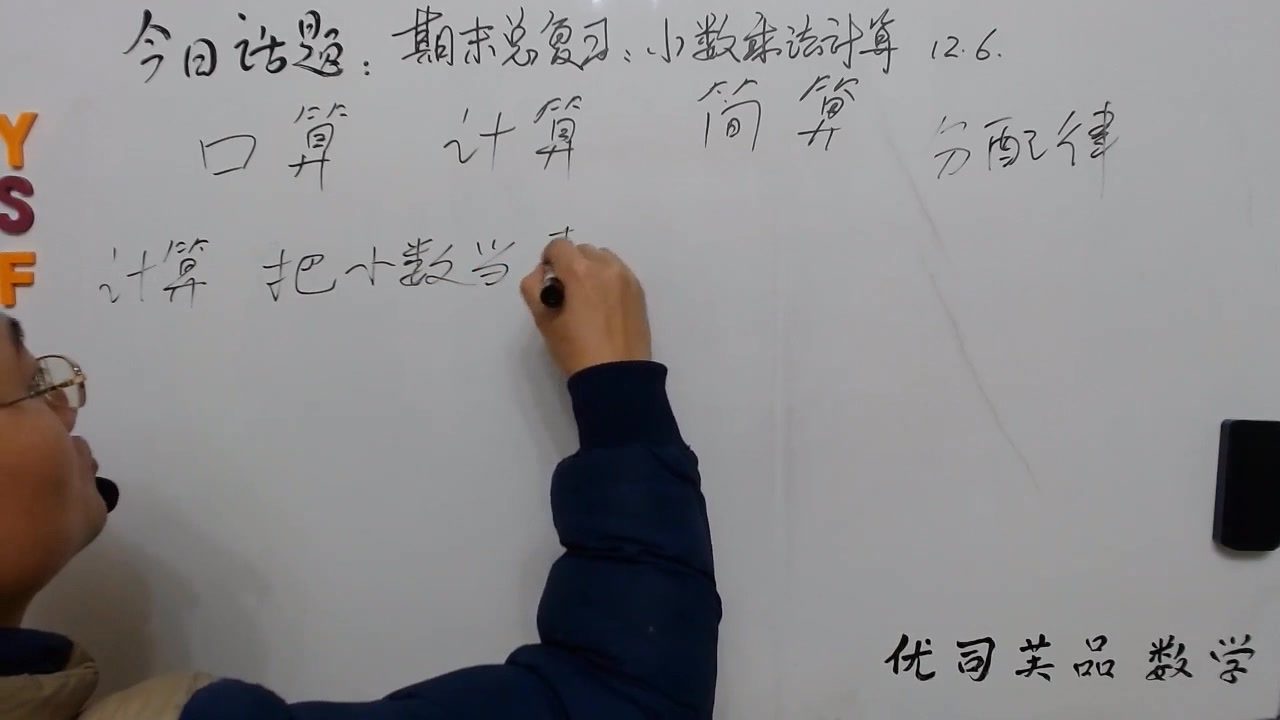 今日话题：期末总复习：小数乘法计算 12.6.
口算 计算 简算 分配律
计算 把小数当
Y
S
F
优司芙品数学